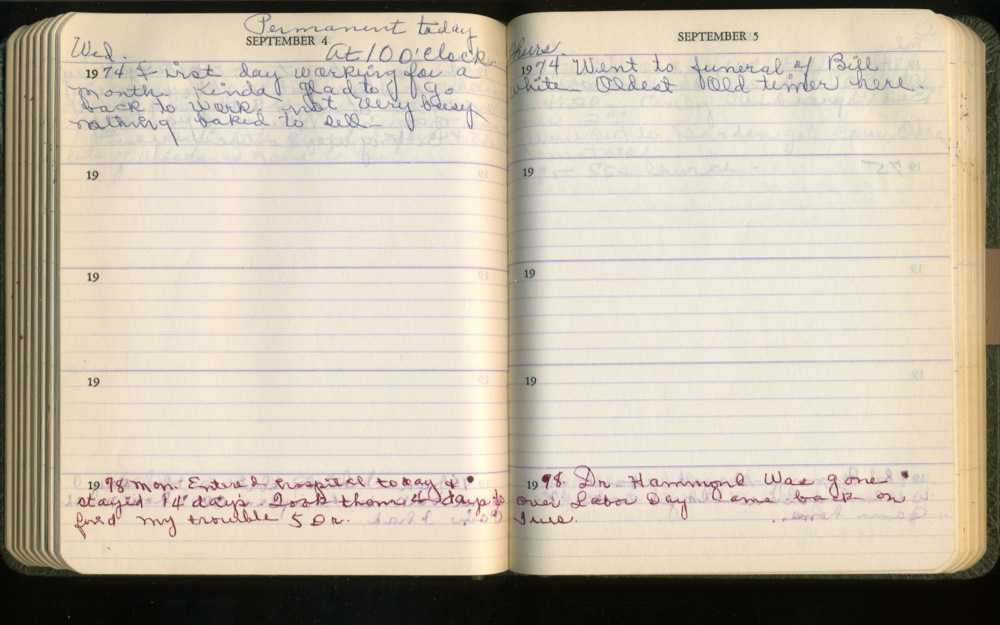 Permanent today
SEPTEMBER 4
Wed. At 10 O'clock
1974 First day working for a
month. Kinda glad to go
back to work. not very busy
nothing baked to sell.
19
19
19
1998 Mon. Entered hospital today &
stayed 14 days. Took them 4 days to
find my trouble 5 Dr.
SEPTEMBER 5
Thurs.
1974 Went to funeral of Bill
White. Oldest Old timer here.
19
19
19
1998. Dr. Hammond Was gone
over Labor Day came back on
Tues.